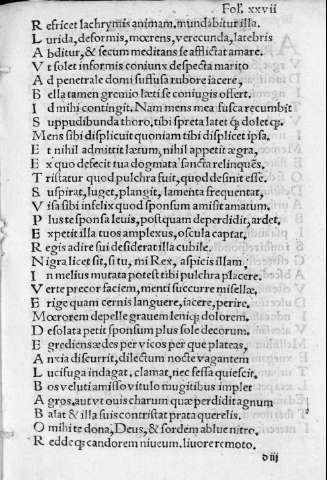 Fol. xxvii
R efricet lachrymis animam. mundabitur illa.
L urida, deformis, mœrens, verecunda, latebris
A bditur, & secum meditans se afflictat amare.
V t solet informis coniunx despecta marito
A d penetrale domi suffusa rubore iacere,
B ella tamen gremio læti se coniugis offert.
I d mihi contingit. Nam mens mea fusca recumbit
S uppudibunda thoro, tibi spreta latet q́; dolet q́;.
M ens sibi displicuit quoniam tibi displicet ipsa.
E t nihil admittit lætum, nihil appetit ægra,
E x quo defecit tua dogmata sancta relinquẽs.
T ristatur quod pulchra fuit, quod desinit esse.
S uspirat, luget, plangit, lamenta frequentat,
V isa sibi infelix quod sponsum amisit amatum.
P lus te sponsa leuis, postquam deperdidit, ardet,
E xpetit illa tuos amplexus, oscula captat,
R egis adire sui desiderat illa cubile.
N igra licet sit, si tu, mi Rex, aspicis illam;
I n melius mutata potest tibi pulchra placere.
V erte precor faciem, menti succurre misellæ,
E rige quam cernis languere, iacere, perire.
M œrorem depelle grauem leniq́; dolorem.
D esolata petit sponsum plus sole decorum.
E grediens ædes per vicos per que plateas,
A nxia discurrit, dilectum nocte vagantem
L ucifuga indagat. clamat, nec fessa quiescit.
B os veluti amisso vitulo mugitibus implet
A gros. aut vt ouis charum quæ perdidit agnum
B alat & illa suis contristat prata querelis.
O mihi te dona, Deus, & sordem ablue nitro.
R edde q́; candorem niueum, liuorem moto.
d iij